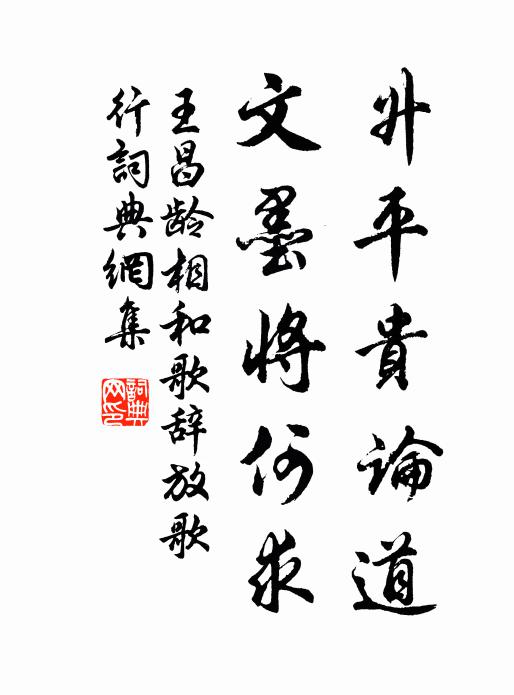 升平貴論道
文墨將何求
王昌龄相和歌辞放歌
行詞典網集
詞典網印